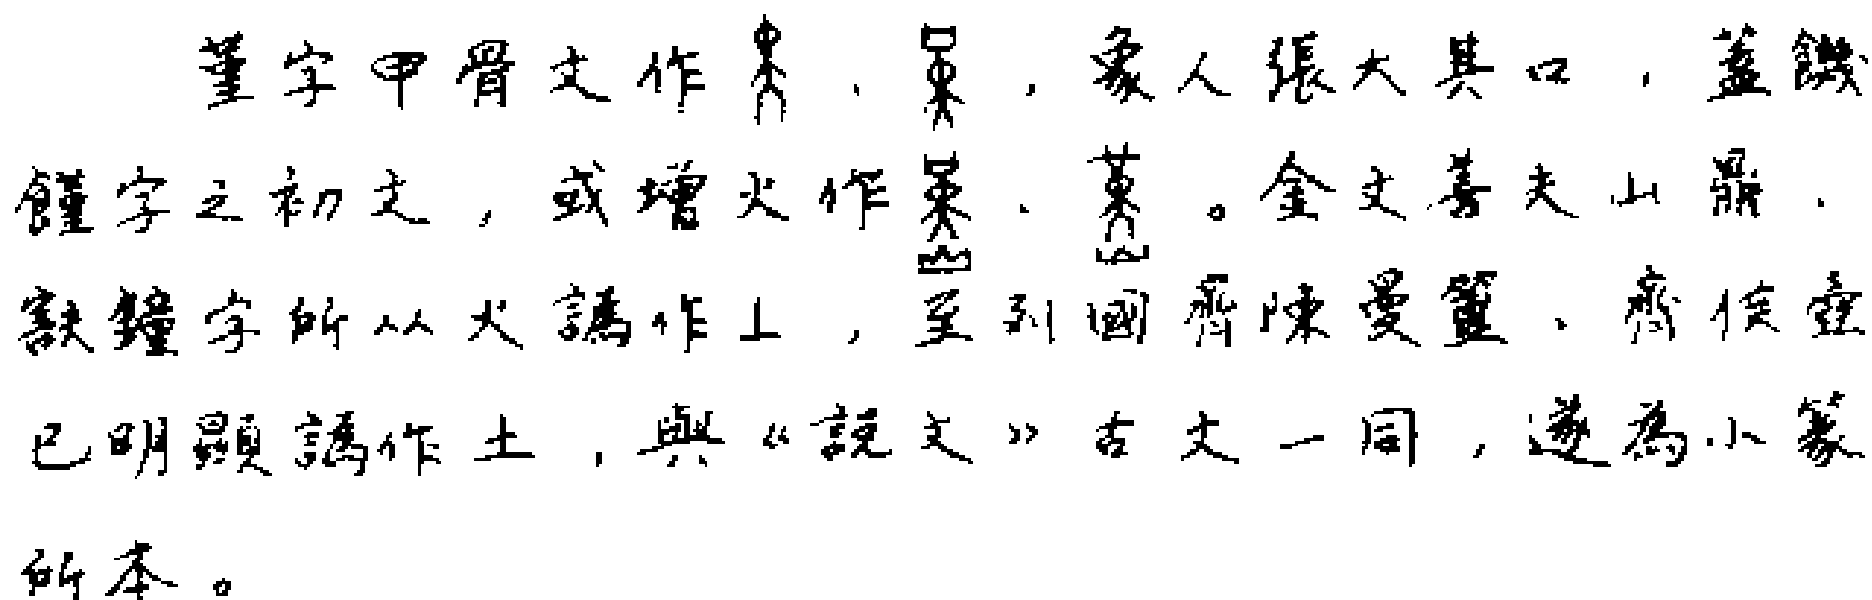 堇字甲骨文作、,象人張大其口,蓋饑
饉字之初文,或增火作、。金文善夫山鼎、
㝬鐘字所从火譌作⊥,至列國齊陳曼簠、齊侯壺
已明顯譌作土,與《說文》古文一同,遂為小篆
所本。